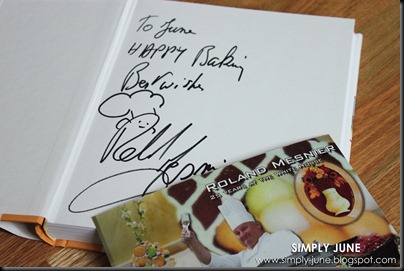 To June
HAPPY Baking
Best wishes
ROLAND MESNIER
25 YEARS AT THE WHITE HOUSE
SIMPLY JUNE
www.simply-june.blogspot.com